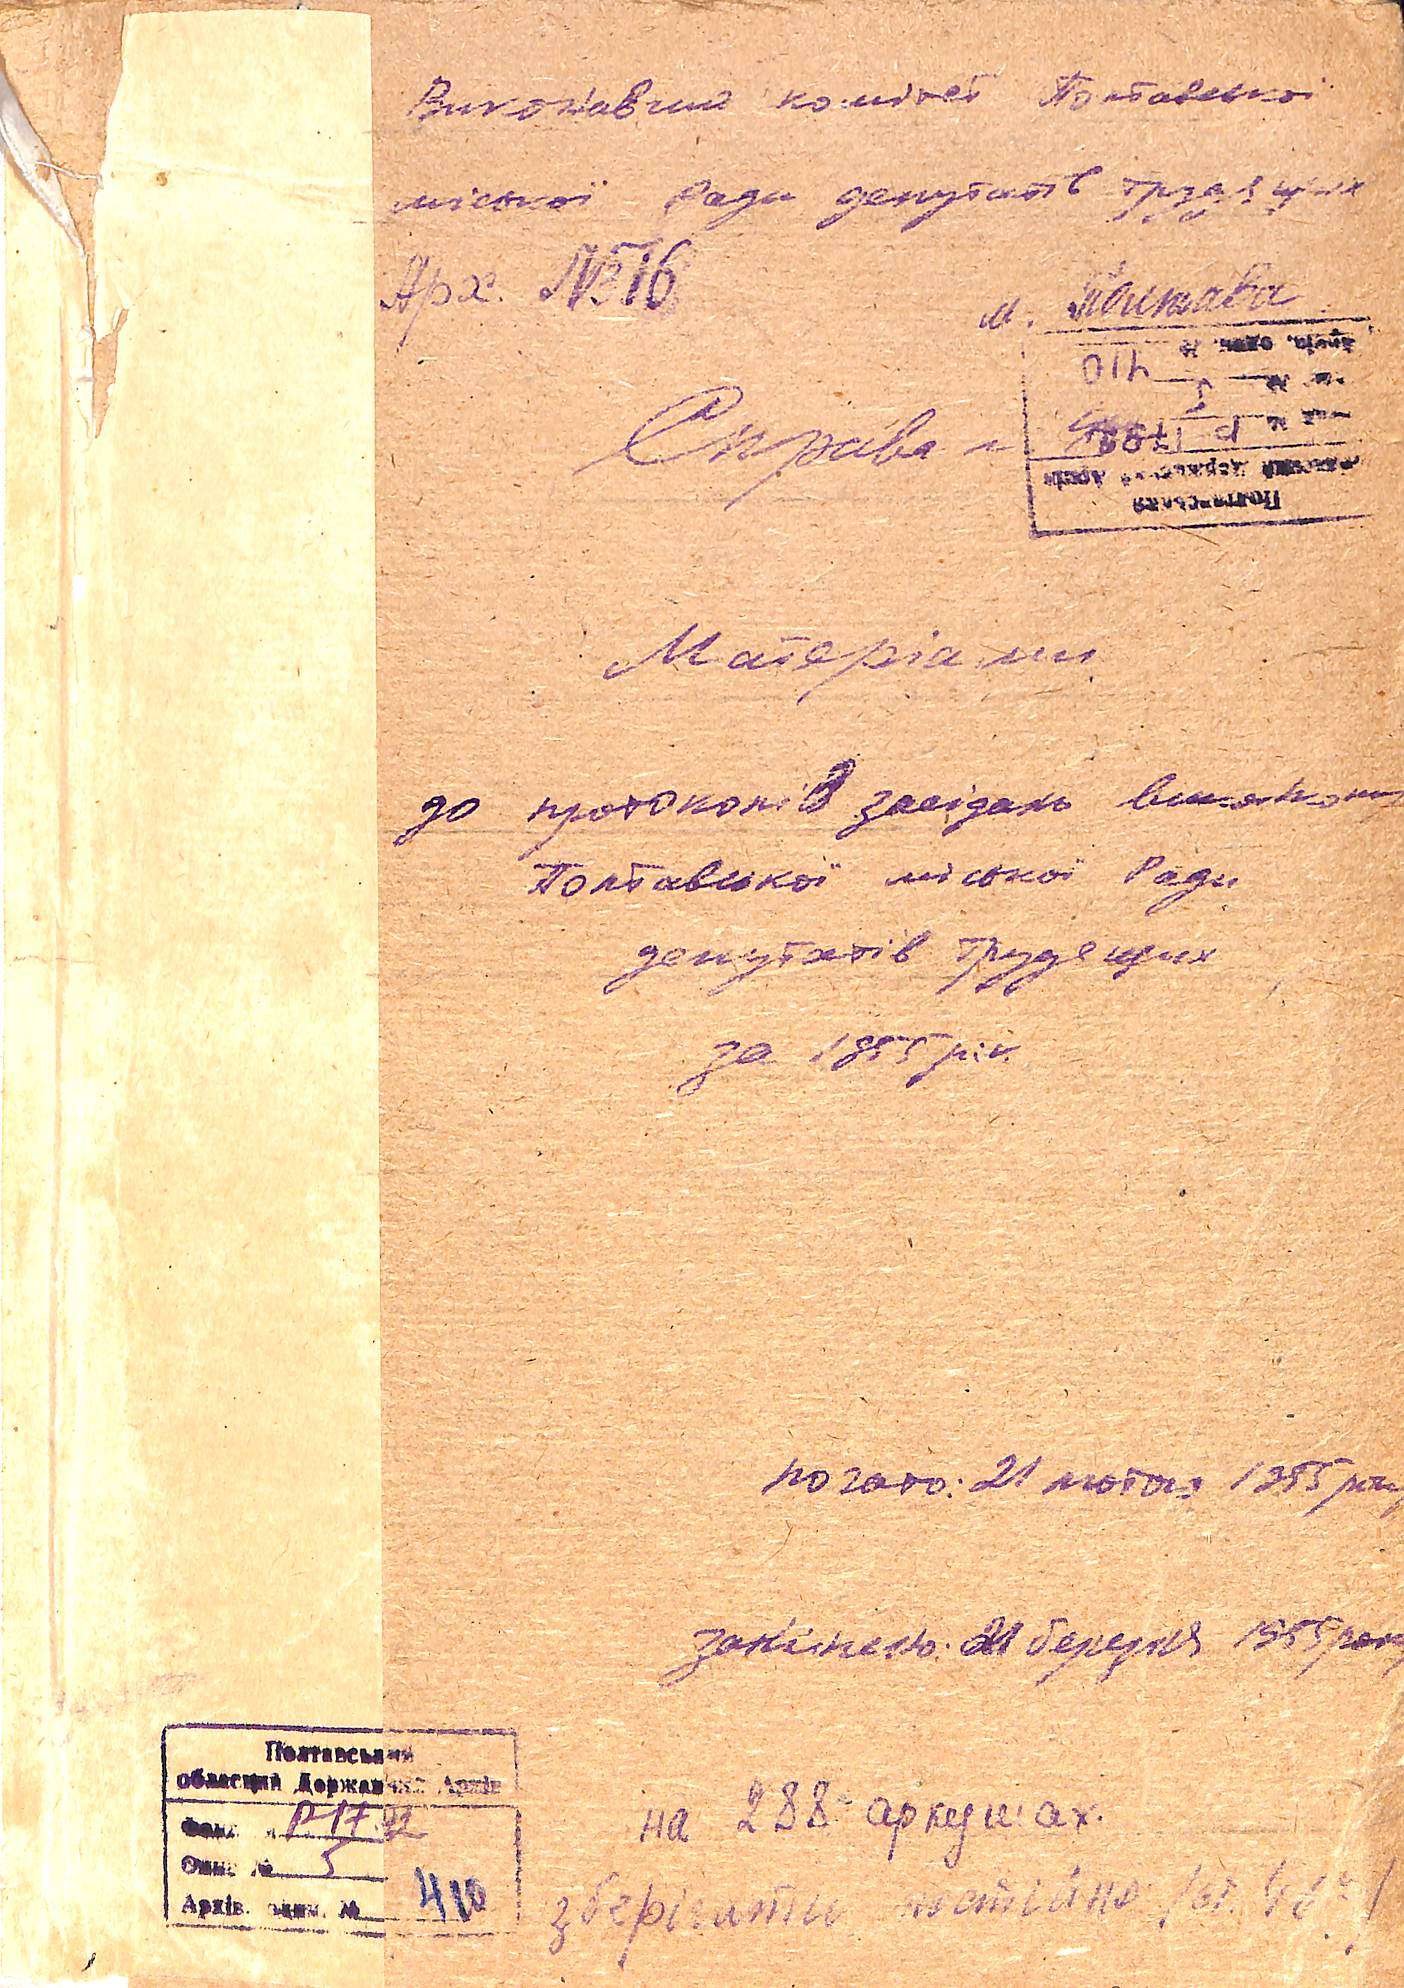 Виконавчий комітет Полтавської
міської Ради депутатів трудящих
Арх. №16
м. Полтава
Справа №
Полтавський
обласний Державний Архів
Фонд № Р-1792
Опис № 5
Архів. один. № 410
Матеріали
до протоколів засідань виконкому
Полтавської міської Ради
депутатів трудящих
за 1955 рік
почато: 21 лютого 1955 року
закінчено: 21 березня 1955 року
Полтавський
обласний Державний Архів
Фонд № Р-1792
Опис № 5
Архів. один. № 410
на 288 аркушах.
зберігати постійно